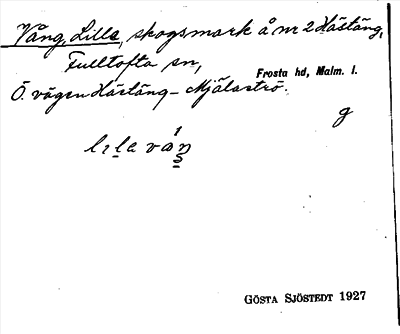 Vång, Lilla, skogsmark å nr 2 Hästäng,
Fulltofta sn,
Frosta hd, Malm. l.
Ö. vägen Hästäng - Mjälaströ.
g
GÖSTA SJÖSTEDT 1927